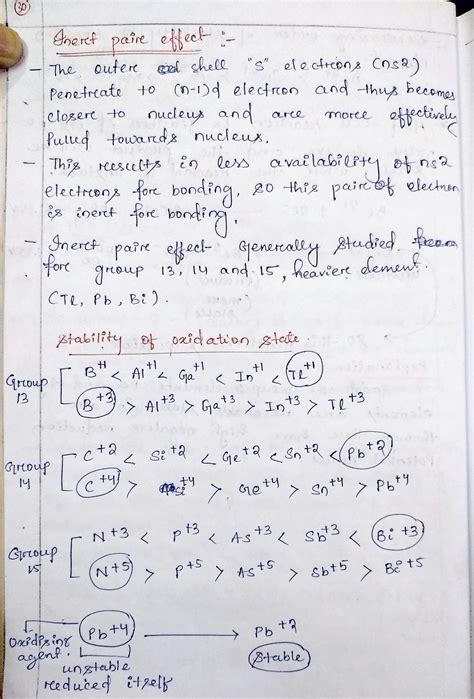 30
Inert paire effect :-
- The outere shell "s" electrons (ns2)
Penetreate to (n-1)d electron and thus becomes
closere to nucleus and are more effectively
Pulled towards nucleus.
- This results in less availability of ns2
electrons fore bonding, so this paire of electron
is inert fore bonding.
- Inert paire effect Generally studied
fore group 13, 14 and 15, heavier element.
(Tl, Pb, Bi).
Stability of oxidation state:
Group 13
B+1 < Al+1 < Ga+1 < In+1 < Tl+1
B+3 > Al+3 > Ga+3 > In+3 > Tl+3
Group 14
C+2 < Si+2 < Ge+2 < Sn+2 < Pb+2
C+4 > Si+4 > Ge+4 > Sn+4 > Pb+4
Group 15
N+3 < P+3 < As+3 < Sb+3 < Bi+3
N+5 > P+5 > As+5 > Sb+5 > Bi+5
Oxidising agent. Pb+4 → Pb+2
unstable Stable
reduced itself